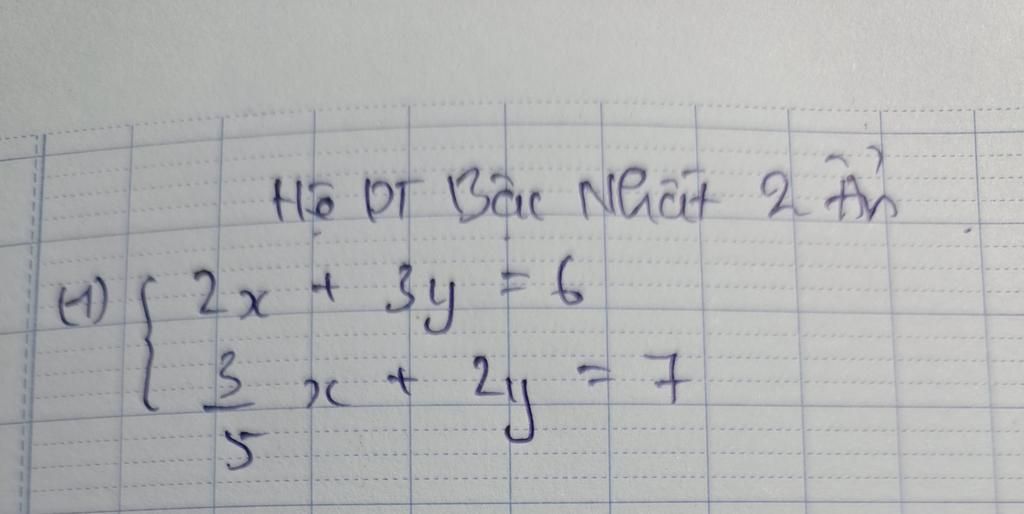 Hệ PT Bậc Nhất 2 Ẩn
(1) { 2x + 3y = 6
3/5 x + 2y = 7